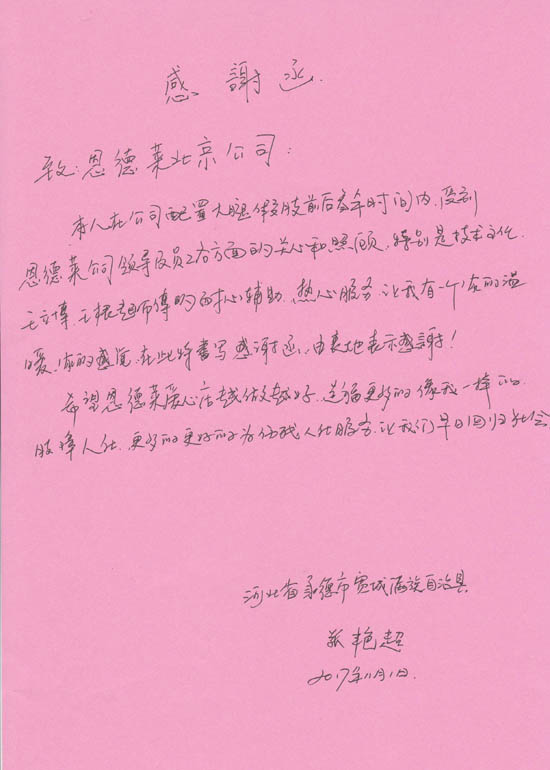 感謝函
致：恩德莱北京公司：
本人在公司配置大腿假肢前后多余时间内，受到
恩德莱公司领导及员工各方面的关心和照顾，特别是技术
王立博、王根超师傅的耐心辅助，热心服务，让我有一个家的温
暖，家的感觉，在此特書写感谢函，由衷地表示感謝！
希望恩德莱爱心店越做越好，造福更多的像我一样的
肢障人仕，更多的更好的为伤残人仕服务，让我们早日回归社会
河北省承德市宽城满族自治县
艳超
2017年11月1日.